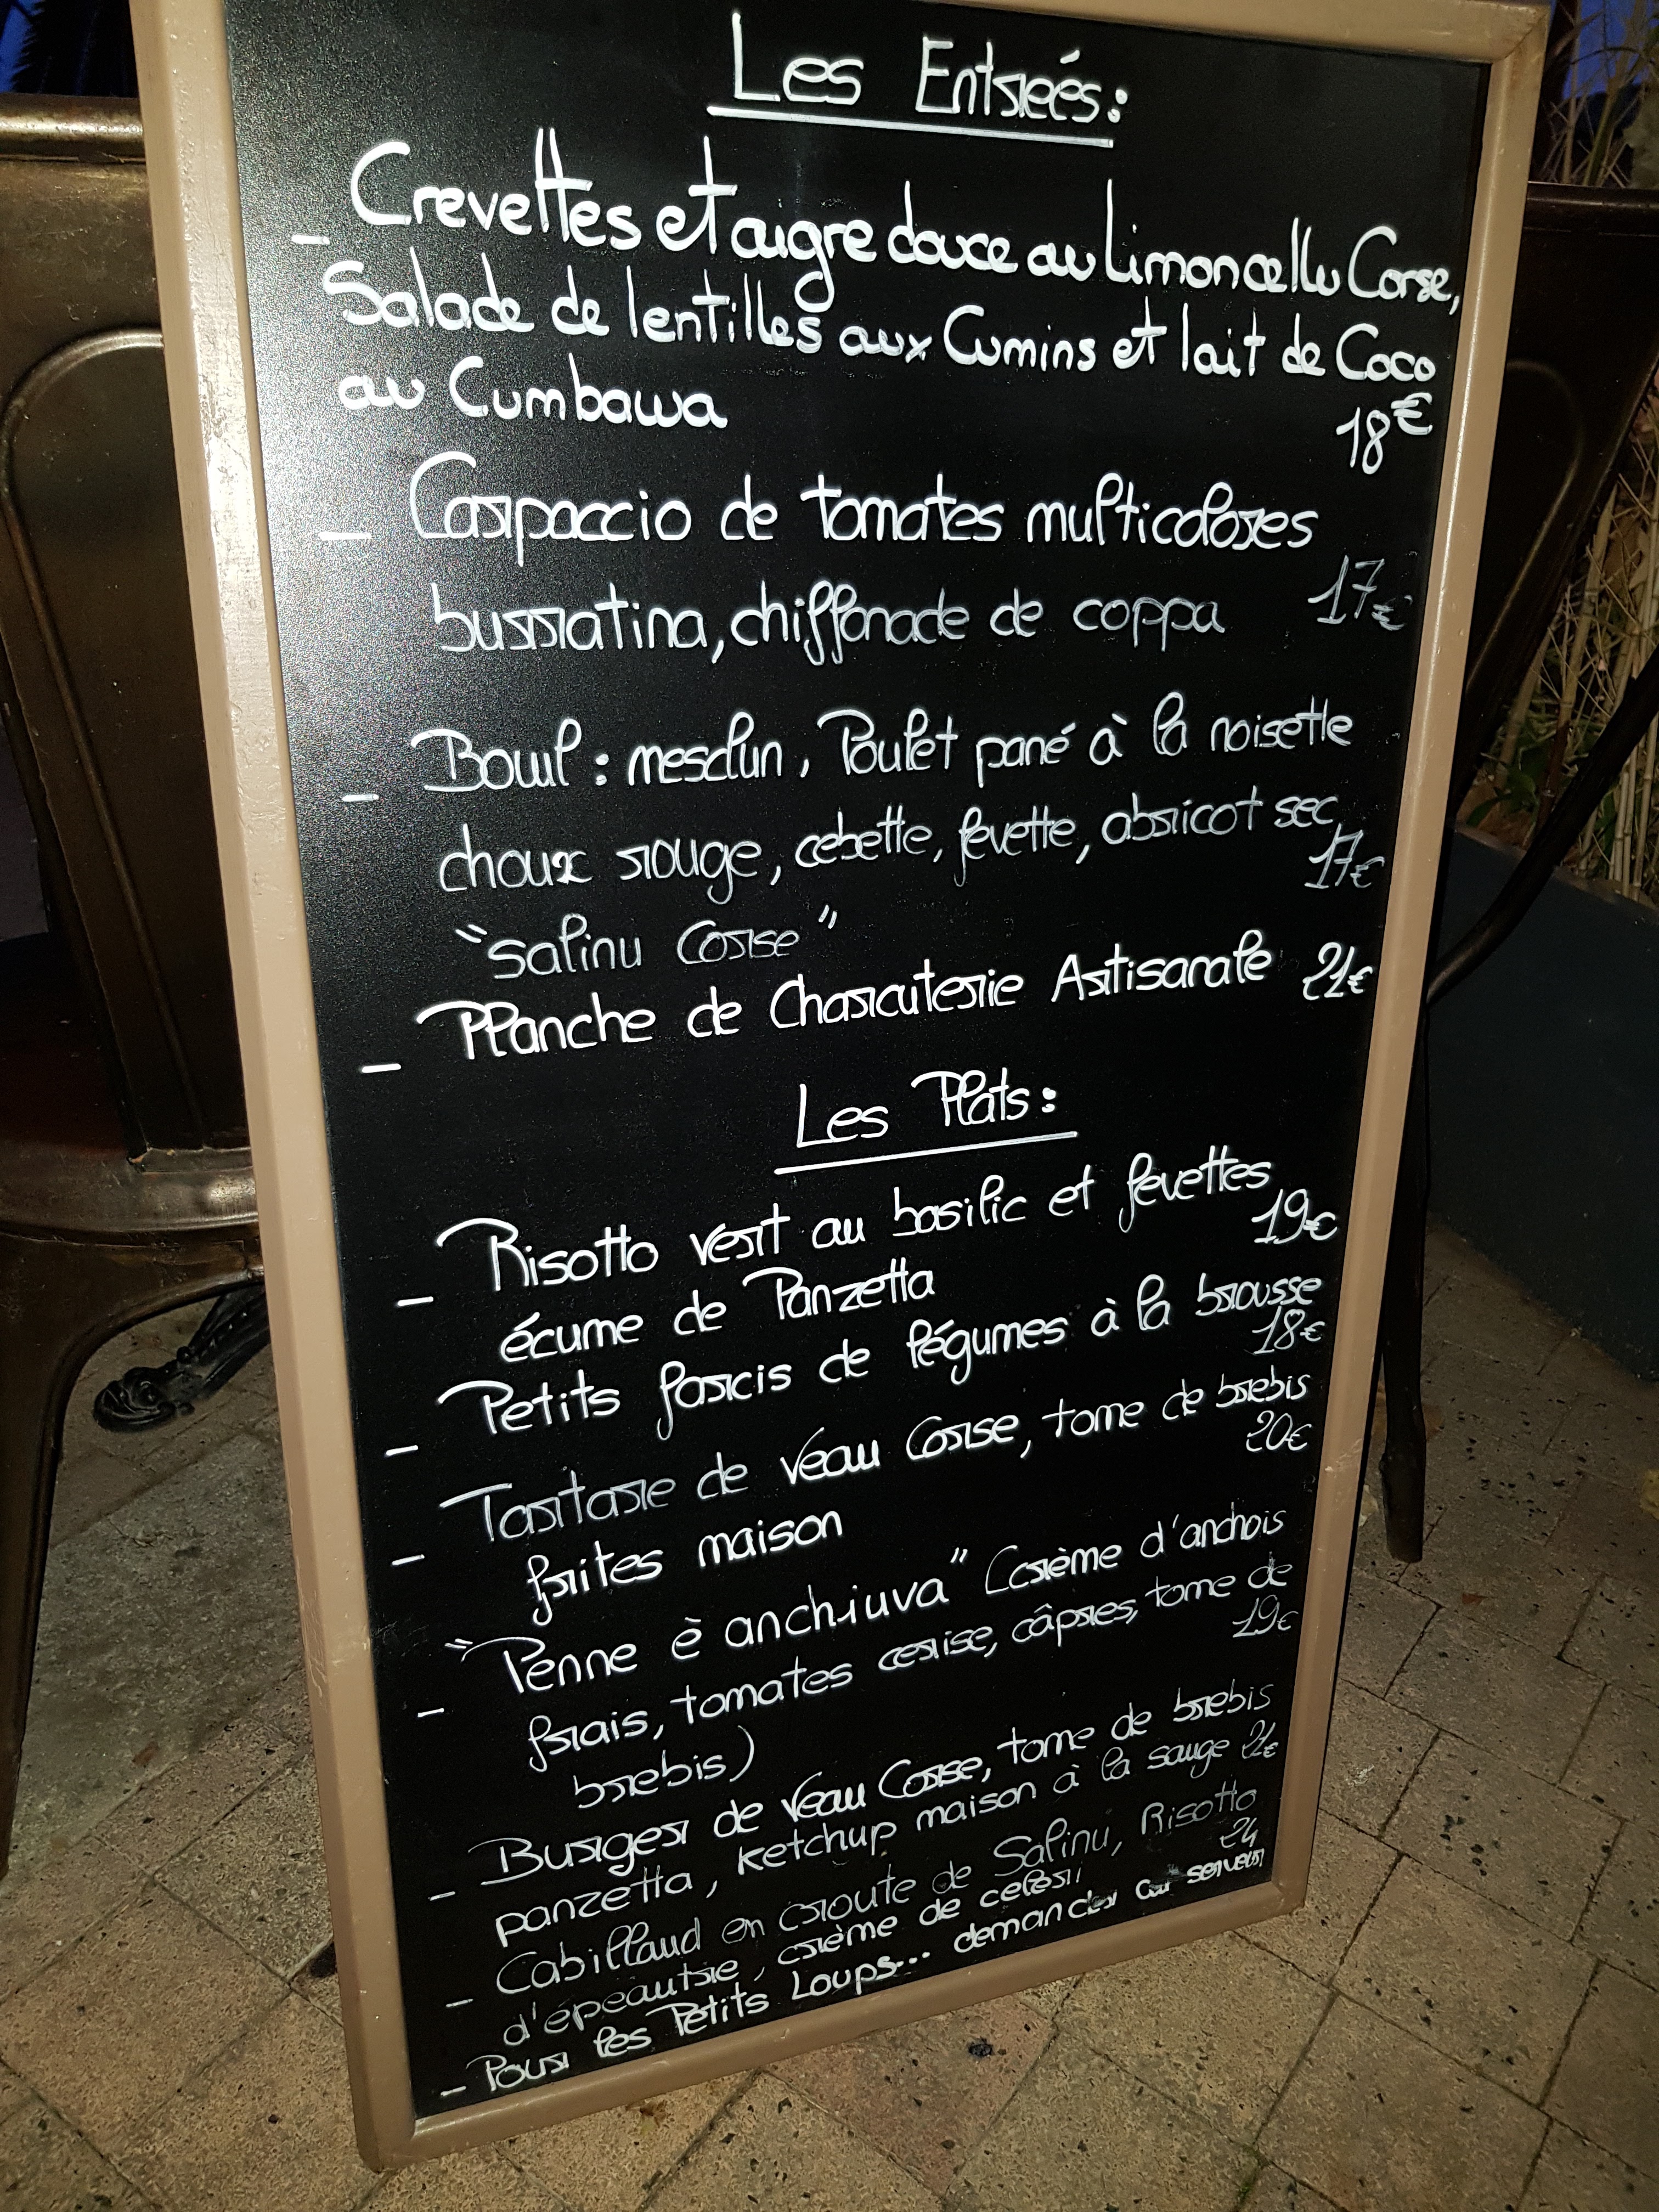 Les Entreés:
- Crevettes et aigre douce au Limoncellu Corse,
Salade de lentilles aux Cumins et lait de Coco
au Cumbawa 18€
- Carpaccio de tomates multicolores
burratina, chiffonade de coppa 17€
- Bowl : mesclun, Poulet pané à la noisette
choux rouge, cebette, fevette, abricot sec
17€
"Salinu Corse"
- Planche de Charcuterie Artisanale 21€
Les Plats:
- Risotto vert au basilic et fevettes
19€
écume de Panzetta
- Petits farcis de légumes à la brousse
18€
- Tartare de veau Corse, tome de brebis
20€
frites maison
- "Penne è anchiuva" (crème d'anchois
frais, tomates cerise, câpres, tome de
19€
brebis)
- Burger de Veau Corse, tome de brebis
panzetta, ketchup maison à la sauge 21€
- Cabillaud en croute de Salinu, Risotto
24
d'épeautre, crème de celeri
- Pour les Petits Loups... demander au serveur